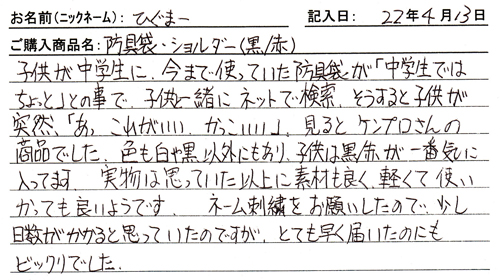 お名前(ニックネーム): ひぐまー 記入日: 22年4月13日
ご購入商品名: 防具袋・ショルダー(黒/赤)
子供が中学生に、今まで使っていた防具袋が「中学生では
ちょっと」との事で、子供と一緒にネットで検索、そうすると子供が
突然、「あっ、これがいい、かっこいい」、見るとケンプロさんの
商品でした、色も白や黒以外にもあり、子供は黒/赤が一番気に
入ってます、実物は思っていた以上に素材も良く、軽くて使い
かっても良いようです、 ネーム刺繍をお願いしたので、少し
日数がかかると思っていたのですが、とても早く届いたのにも
ビックリでした、